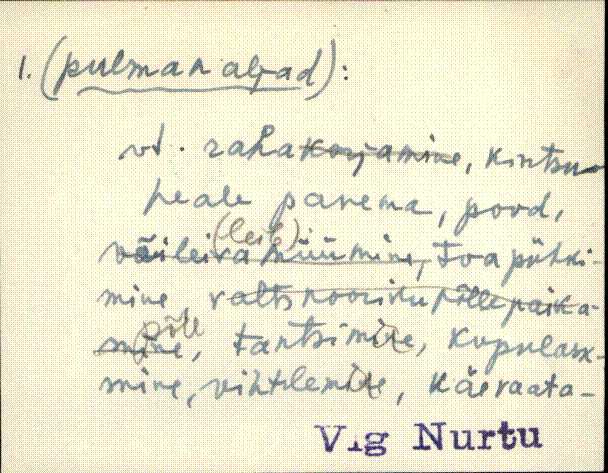 1. (pulmanaljad):
vt. rahakorjamine, kintsu
peale panema, pood,
(leib)
võileiva müümine, toa pühki-
mine, valtsnooriku põllepaika-
põlle
mine, tantsimine, kupulask-
mine, vihtlemine, käevaata-
Vig Nurtu